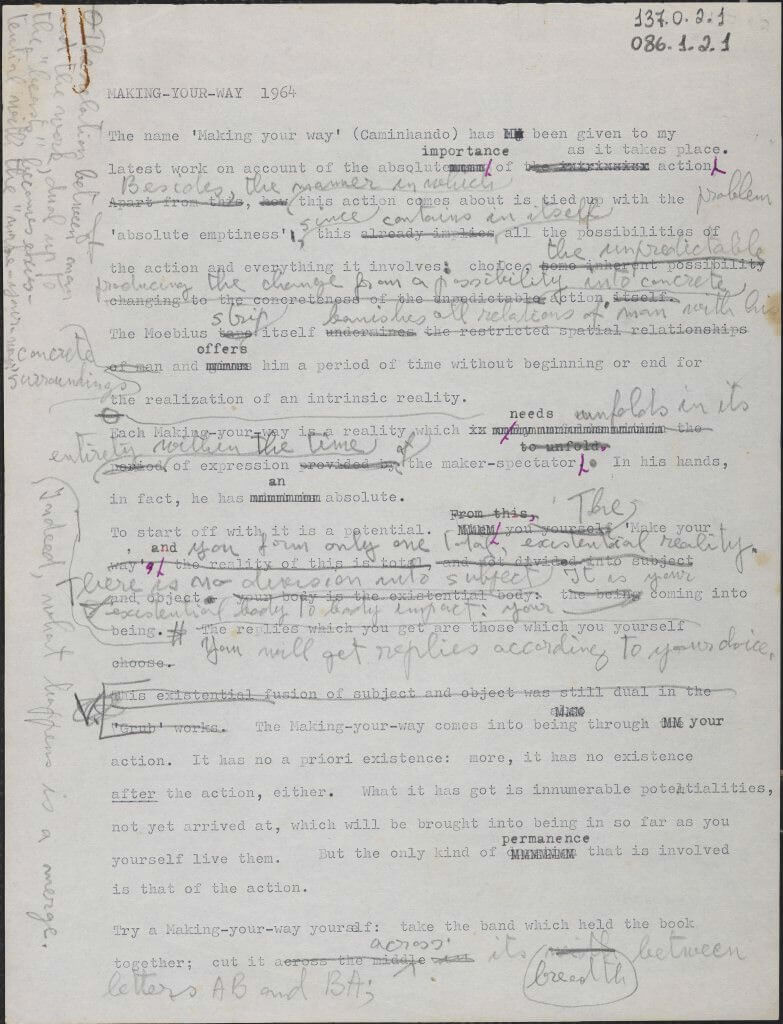 137.0.2.1
086.1.2.1
MAKING-YOUR-WAY 1964
The name 'Making your way' (Caminhando) has been given to my
importance as it takes place.
latest work on account of the absolute of the action
Besides, the manner in which
Apart from this, how this action comes about is tied up with the problem
since contains in itself
'absolute emptiness', this already implies all the possibilities of
the unpredictable
the action and everything it involves: choice, some inherent possibility
producing the change from a possibility into concrete
changing to the concreteness of the unpredictable action itself.
strip banishes all relations of man with his
The Moebius tape itself undermines the restricted spatial relationships
concrete
surroundings
offers
of man and him a period of time without beginning or end for
the realization of an intrinsic reality.
needs unfolds in its
Each Making-your-way is a reality which the
entirety within the time to unfold.
period of expression provided by of the maker-spectator. In his hands,
an
in fact, he has absolute.
From this, The
To start off with it is a potential. you yourself 'Make your
, and you form only one total, existential reality.
way' the reality of this is total and not divided into subject
There is no division into subject It is your
and object. your body is the existential body: the being coming into
existential body to body impact: your
being. # The replies which you get are those which you yourself
choose. You will get replies according to your choice.
This existential fusion of subject and object was still dual in the
'Grub' works. The Making-your-way comes into being through your
action. It has no a priori existence: more, it has no existence
after the action, either. What it has got is innumerable potentialities,
not yet arrived at, which will be brought into being in so far as you
permanence
yourself live them. But the only kind of that is involved
is that of the action.
Try a Making-your-way yourself: take the band which held the book
across
together; cut it across the middle its breadth between
letters AB and BA;
The relation between man
and the work, dual up to
the "beasts"
becomes exis-
tential with the "make your way"
Indeed, what happens is a merge.